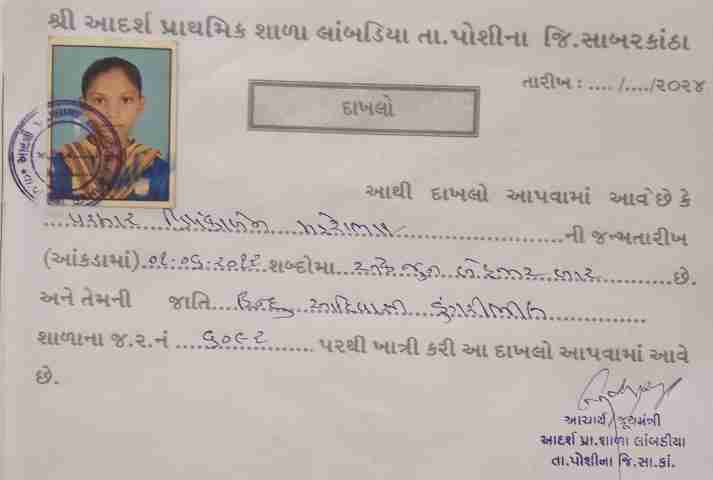 શ્રી આદર્શ પ્રાથમિક શાળા લાંબડિયા તા.પોશીના જિ.સાબરકાંઠા
તારીખ : ..../..../૨૦૨૪
દાખલો
આથી દાખલો આપવામાં આવે છે કે
પરમાર પ્રિયંકાબેન ની જન્મતારીખ
(આંકડામાં) ૦૧-૦૬-૨૦૧૨ શબ્દોમા એક જુન બે હજાર બાર છે.
અને તેમની જાતિ હિન્દુ આદિવાસી ડુંગરીભીલ
શાળાના જ.ર.નં ૬૦૯૨ પરથી ખાત્રી કરી આ દાખલો આપવામાં આવે
છે.
આચાર્ય/
આદર્શ પ્રા.શાળા લાંબડીયા
તા.પોશીના જિ.સા.કાં.